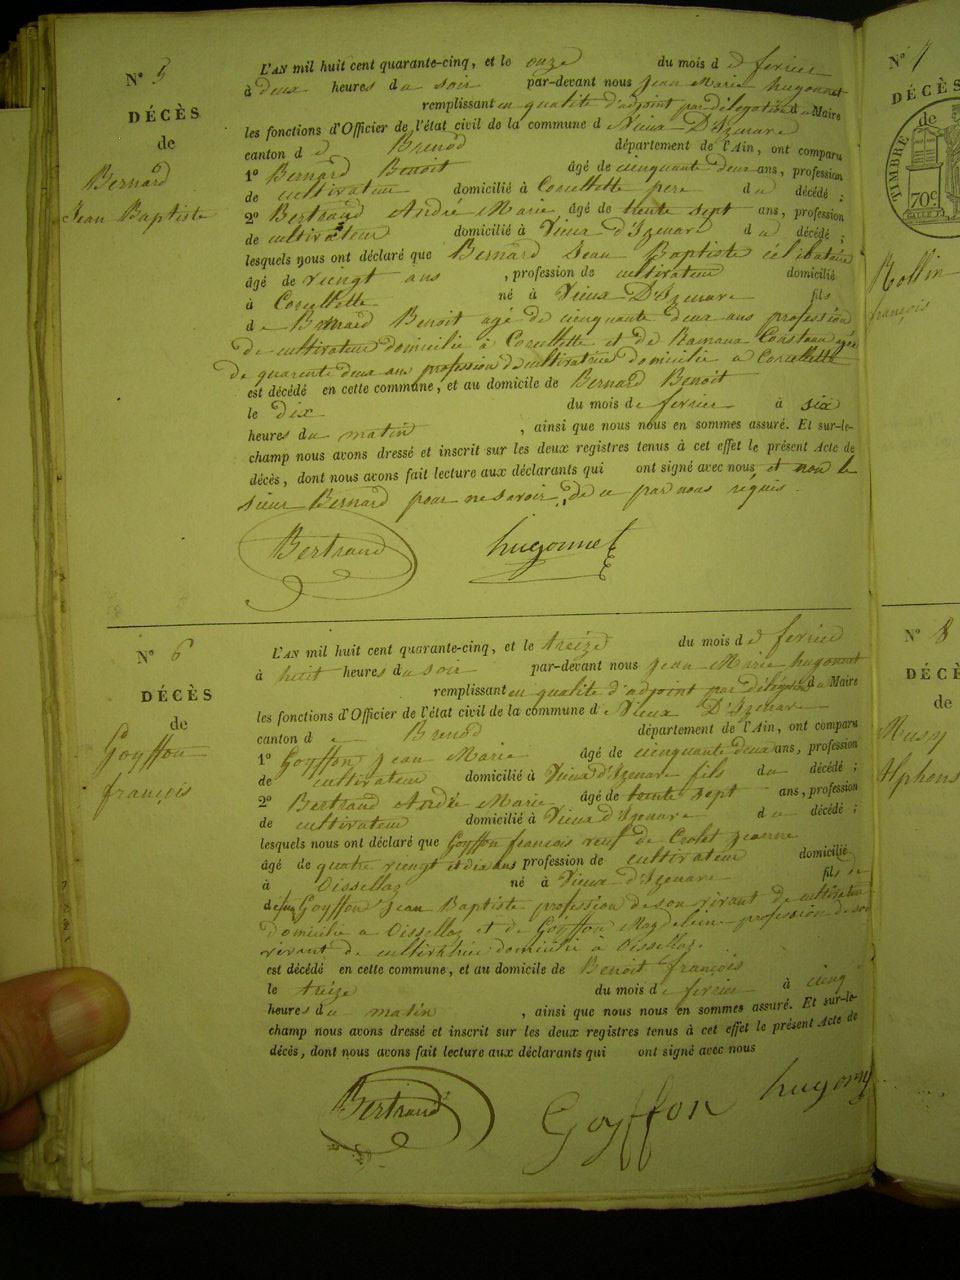 N° 5
DÉCÈS
de
Bernard
Jean Baptiste
L'AN mil huit cent quarante-cinq, et le onze du mois d e fevrier
à deux heures du soir par-devant nous jean Marie hugonnet
remplissant en qualité d'adjoint par délégation du Maire
les fonctions d'Officier de l'état civil de la commune d Vieux D'Izenave
canton d e Brenod département de l'Ain, ont comparu
1° Bernard Benoit âgé de cinquante deux ans, profession
de cultivateur domicilié à Corcellette pere du décédé ;
2° Bertrand André Marie, âgé de trente sept ans, profession
de cultivateur domicilié à Vieux d'Izenave du décédé ;
lesquels nous ont déclaré que Bernard Jean Baptiste célibataire
âgé de vingt ans, profession de cultivateur domicilié
à Corcellette né à Vieux D'Izenave fils
de Bernard Benoit agé de cinquante deux ans profession
de cultivateur domicilié à Corcellette et de Ramana agée
de quarente deux ans profession de cultivatrice domicilié a Corcellette
est décédé en cette commune, et au domicile de Bernard Benoit
le dix du mois de fevrier à six
heures du matin, ainsi que nous nous en sommes assuré. Et sur-le-
champ nous avons dressé et inscrit sur les deux registres tenus à cet effet le présent Acte de
décès, dont nous avons fait lecture aux déclarants qui ont signé avec nous et non le
sieur Bernard pour ne savoir, de ce par nous réquis
Bertrand hugonnet
N° 6
DÉCÈS
de
Goyffon
françois
L'AN mil huit cent quarante-cinq, et le treize du mois d e fevrier
à huit heures du soir par-devant nous jean Marie hugonnet
remplissant en qualité d'adjoint par délégation du Maire
les fonctions d'Officier de l'état civil de la commune d Vieux D'Izenave
canton d e Brenod département de l'Ain, ont comparu
1° Goyffon jean Marie âgé de cinquante deux ans, profession
de cultivateur domicilié à Vieux d'Izenave fils du décédé ;
2° Bertrand André Marie âgé de trente sept ans, profession
de cultivateur domicilié à Vieux d'Izenave du décédé ;
lesquels nous ont déclaré que Goyffon françois veuf de Crolet jeanne
âgé de quatre vingt et dix ans profession de cultivateur domicilié
à Oissellaz né à Vieux d'Izenave fils de
defeu Goyffon Jean Baptiste profession de son vivant de cultivateur
domicilié a Oissellaz et de Goyffon Magdelein profession de son
vivant de cultivatrice domicilié a Oissellaz.
est décédé en cette commune, et au domicile de Benoit françois
le treize du mois de fevrier à cinq
heures du matin, ainsi que nous nous en sommes assuré. Et sur-le-
champ nous avons dressé et inscrit sur les deux registres tenus à cet effet le présent Acte de
décès, dont nous avons fait lecture aux déclarants qui ont signé avec nous
Bertrand Goyffon hugonnet
N° 7
DÉCÈS
de
TIMBRE
70c
Rollin
françois
N° 8
DÉCÈ
de
Musy
Alphons